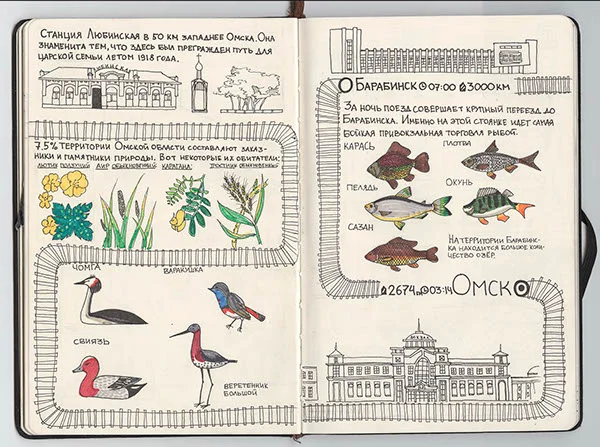 Станция Любинская в 50 км западнее Омска. Она
знаменита тем, что здесь был прегражден путь для
царской семьи летом 1918 года.
ЛЮБИНСКАЯ
7,5% территории Омской области составляют заказ-
ники и памятники природы. Вот некоторые их обитатели:
лютик ползучий аир обыкновенный карагана: тростник обыкновенный
чомга
варакушка
свиязь
веретенник
большой
Барабинск 07:00 3000км
За ночь поезд совершает крупный переезд до
Барабинска. Именно на этой стоянке идет самая
бойкая привокзальная торговля рыбой.
карась
плотва
пелядь
окунь
сазан
На территории Барабинс-
ка находится большое коли-
чество озёр.
2674 03:14 Омск